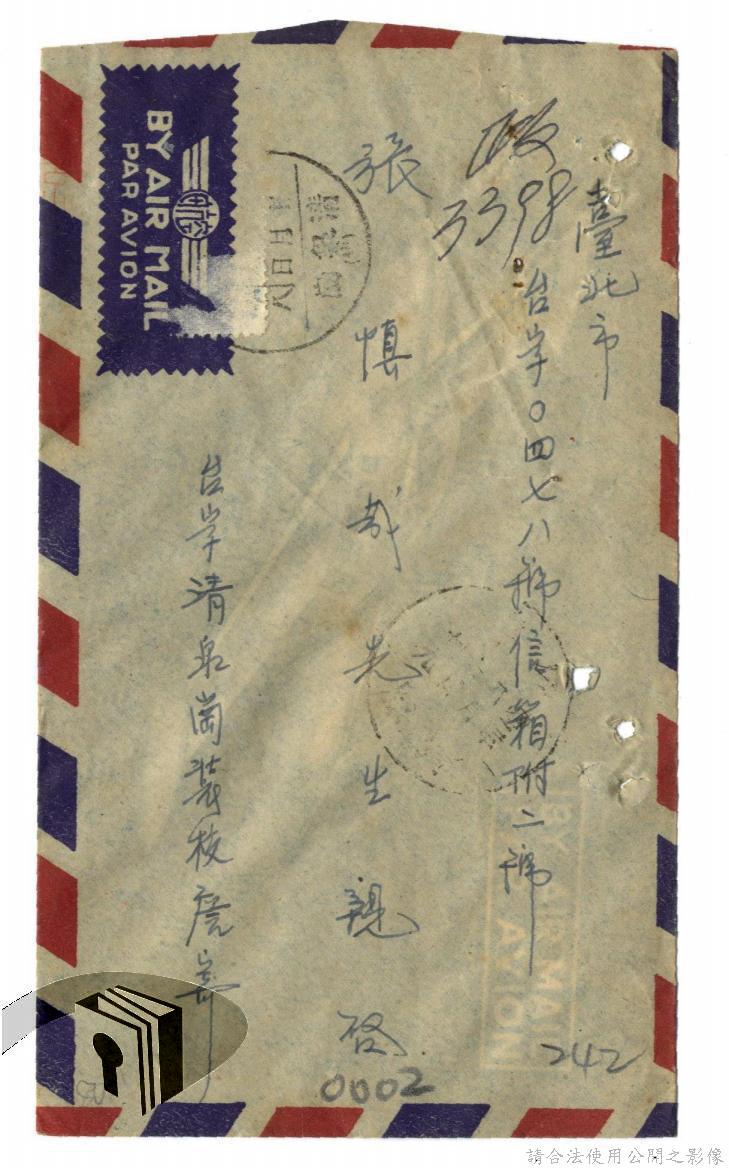 臺北市
台字〇四七八號信箱附二號
張慎哉先生親啓
台字清泉崗裝校廣寄
3398
BY AIR MAIL
PAR AVION
航空
清泉
BY AIR MAIL
AVION
242
0002
請合法使用公開之影像